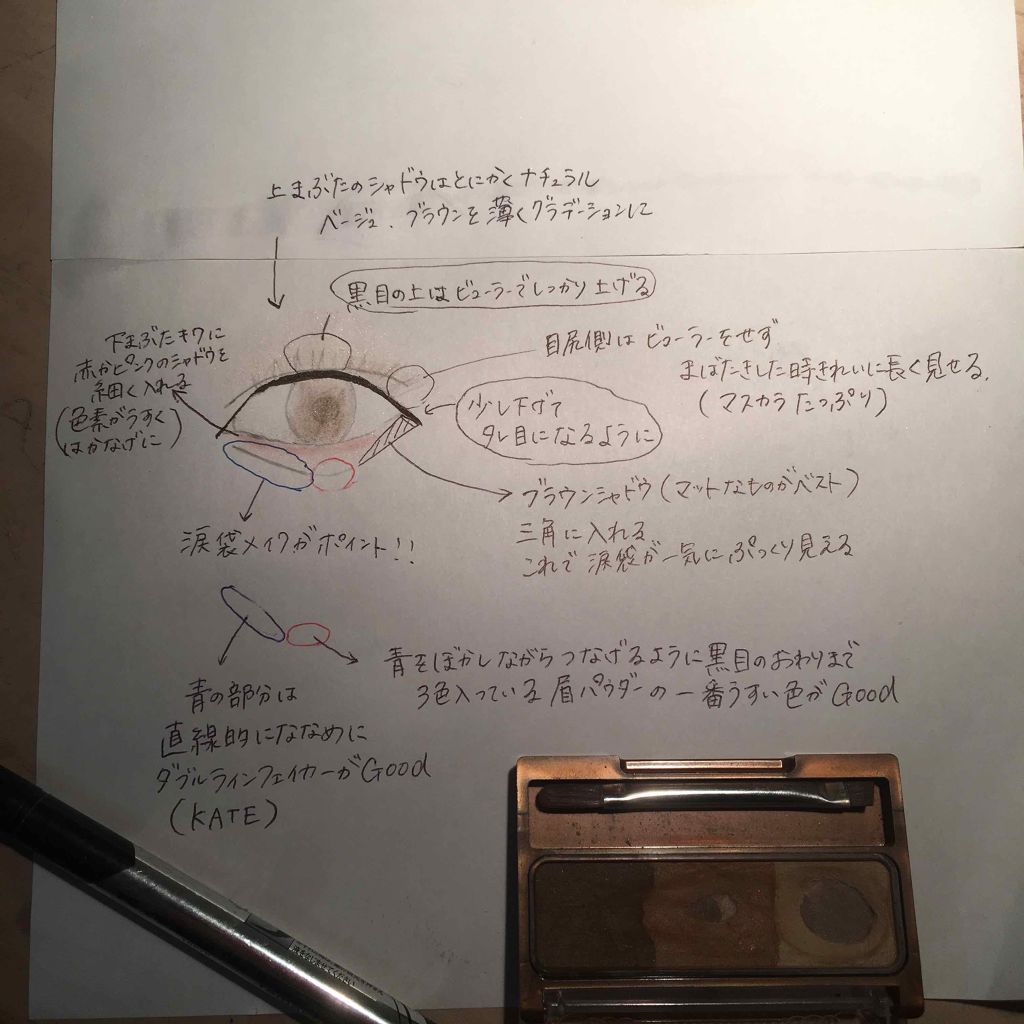 上まぶたのシャドウはとにかくナチュラル
ベージュ、ブラウンを薄くグラデーションに
黒目の上はビューラーでしっかり上げる
下まぶたキワに
赤かピンクのシャドウを
細く入れる
(色素がうすく
はかなげに)
目尻側はビューラーをせず
まばたきした時きれいに長く見せる。
(マスカラたっぷり)
少し下げて
タレ目になるように
ブラウンシャドウ(マットなものがベスト)
三角に入れる
これで涙袋が一気にぷっくり見える
涙袋メイクがポイント!!
青をぼかしながらつなげるように黒目のおわりまで
3色入っている眉パウダーの一番うすい色がGood
青の部分は
直線的にななめに
ダブルラインフェイカーがGood
(KATE)